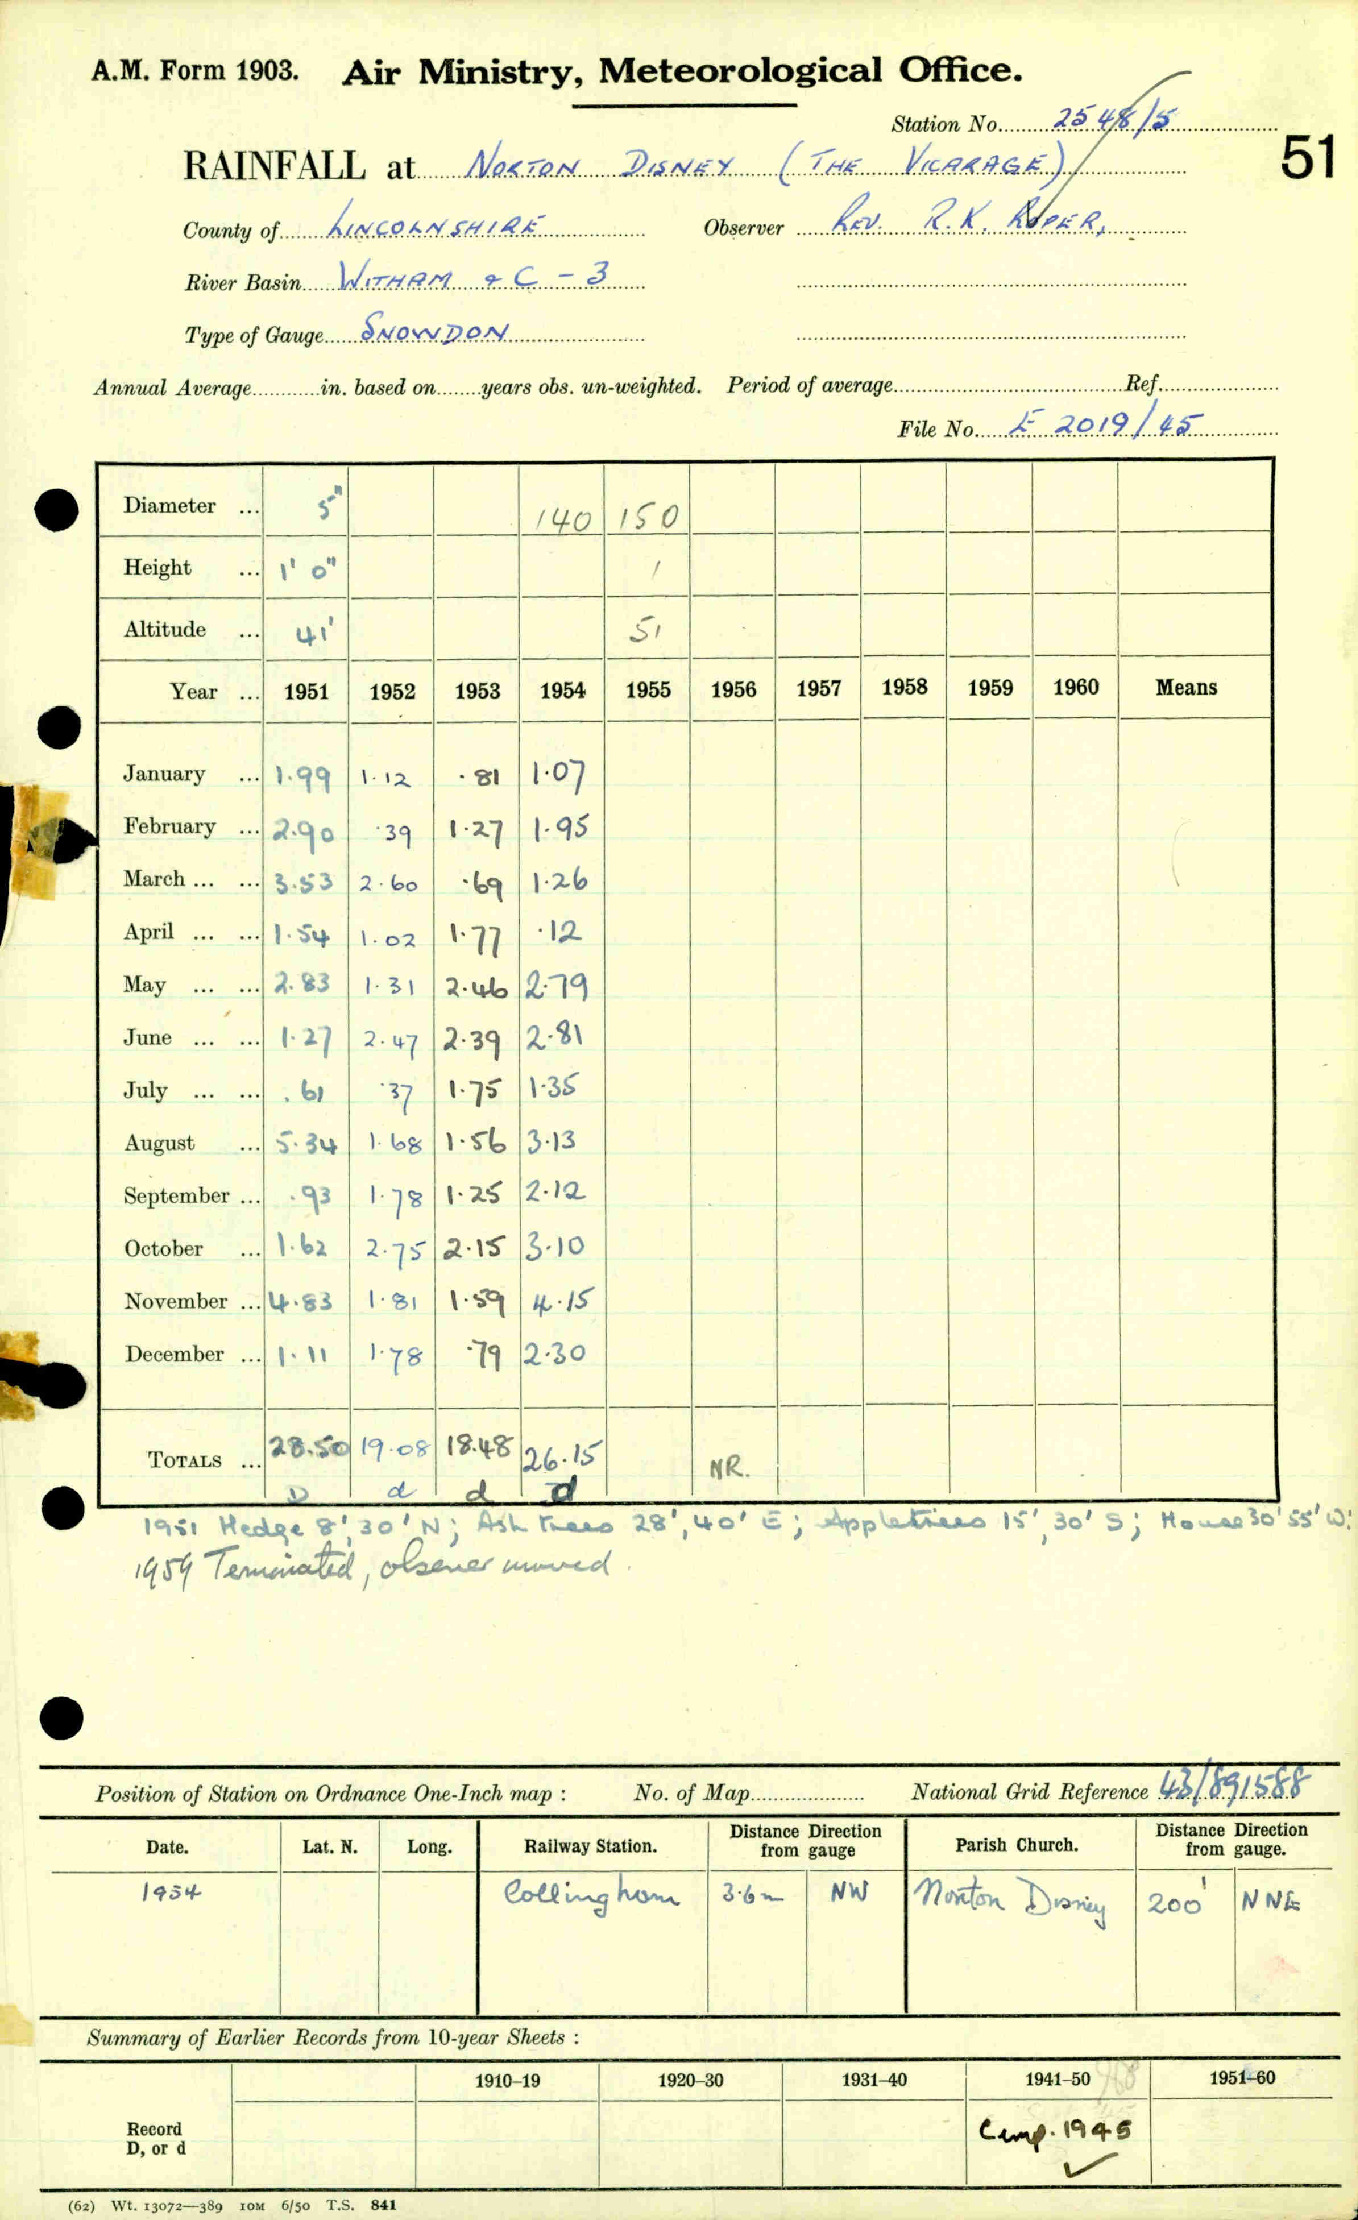 A.M. Form 1903. Air Ministry, Meteorological Office.
Station No. 2548/5
RAINFALL at NORTON DISNEY (THE VICARAGE)
51
County of LINCOLNSHIRE Observer REV. R.K. ROPER,
River Basin WITHAM & C - 3
Type of Gauge SNOWDON
Annual Average in. based on years obs. un-weighted. Period of average Ref.
File No. E 2019/45
Diameter ... 5" 140 150
Height ... 1' 0" 1
Altitude ... 41' 51
Year ... 1951 1952 1953 1954 1955 1956 1957 1958 1959 1960 Means
January ... 1.99 1.12 .81 1.07
February ... 2.90 .39 1.27 1.95
March ... ... 3.53 2.60 .69 1.26
April ... ... 1.54 1.02 1.77 .12
May ... ... 2.83 1.31 2.46 2.79
June ... ... 1.27 2.47 2.39 2.81
July ... ... .61 .37 1.75 1.35
August ... 5.34 1.68 1.56 3.13
September ... .93 1.78 1.25 2.12
October ... 1.62 2.75 2.15 3.10
November ... 4.83 1.81 1.59 4.15
December ... 1.11 1.78 .79 2.30
TOTALS ... 28.50 19.08 18.48 26.15 NR.
D d d d
1951 Hedge 8', 30' N; Ash trees 28', 40' E; Appletrees 15', 30' S; House 30' 55' W:
1959 Terminated, observer moved.
Position of Station on Ordnance One-Inch map : No. of Map National Grid Reference 43/891588
Date. Lat. N. Long. Railway Station. Distance from gauge Direction Parish Church. Distance from gauge. Direction
1954 Collingham 3.6m NW Norton Disney 200' NNE
Summary of Earlier Records from 10-year Sheets :
1910–19 1920–30 1931–40 1941–50 1951–60
Record D, or d Comp. 1945
(62) Wt. 13072—389 10M 6/50 T.S. 841